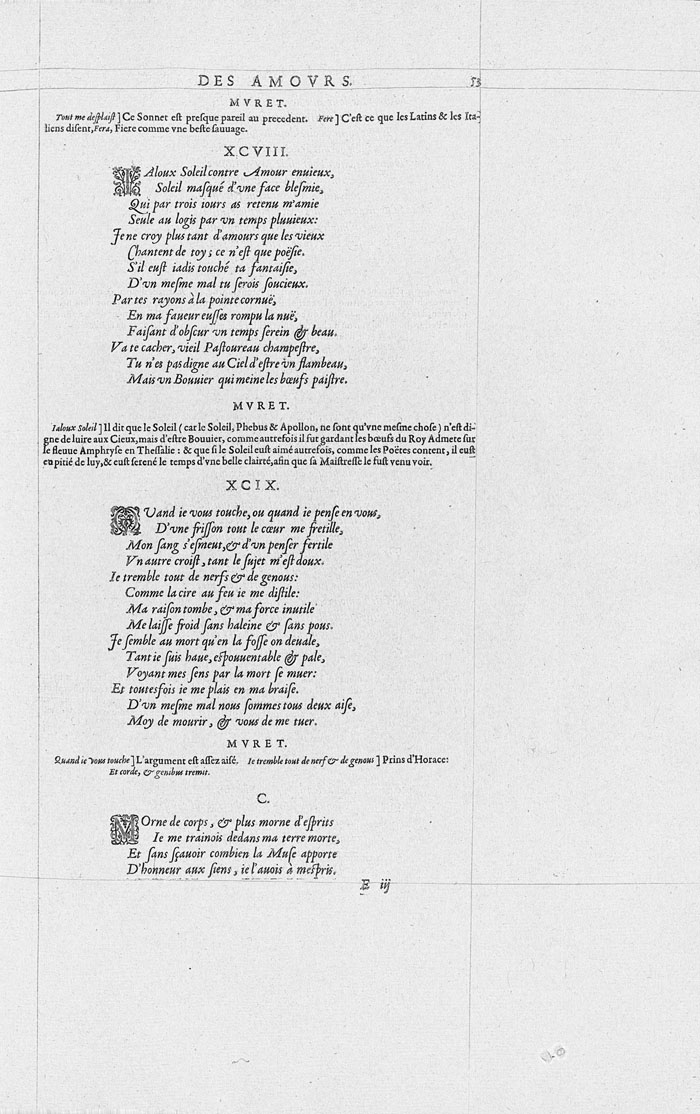 DES AMOVRS. 53
MVRET.
Tout me desplaist ] Ce Sonnet est presque pareil au precedent. Fere ] C'est ce que les Latins & les Ita-
liens disent, Fera, Fiere comme vne beste sauuage.
XCVIII.
IAloux Soleil contre Amour enuieux,
Soleil masqué d'vne face blesmie,
Qui par trois iours as retenu m'amie
Seule au logis par vn temps pluuieux:
Je ne croy plus tant d'amours que les vieux
Chantent de toy; ce n'est que poësie.
S'il eust iadis touché ta fantaisie,
D'vn mesme mal tu serois soucieux.
Par tes rayons à la pointe cornuë,
En ma faueur eusses rompu la nuë,
Faisant d'obscur vn temps serein & beau.
Va te cacher, vieil Pastoureau champestre,
Tu n'es pas digne au Ciel d'estre vn flambeau,
Mais vn Bouuier qui meine les bœufs paistre.
MVRET.
Ialoux Soleil ] Il dit que le Soleil ( car le Soleil, Phebus & Apollon, ne sont qu'vne mesme chose ) n'est di-
gne de luire aux Cieux, mais d'estre Bouuier, comme autrefois il fut gardant les bœufs du Roy Admete sur
le fleuue Amphryse en Thessalie : & que si le Soleil eust aimé autrefois, comme les Poëtes content, il eust
eu pitié de luy, & eust serené le temps d'vne belle clairté, afin que sa Maistresse le fust venu voir.
XCIX.
QVand ie vous touche, ou quand ie pense en vous,
D'vne frisson tout le cœur me fretille,
Mon sang s'esmeut, & d'vn penser fertile
Vn autre croist, tant le sujet m'est doux.
Ie tremble tout de nerfs & de genous:
Comme la cire au feu ie me distile:
Ma raison tombe, & ma force inutile
Me laisse froid sans haleine & sans pous.
Je semble au mort qu'en la fosse on deuale,
Tant ie suis haue, espouuentable & pale,
Voyant mes sens par la mort se muer:
Et toutesfois ie me plais en ma braise.
D'vn mesme mal nous sommes tous deux aise,
Moy de mourir, & vous de me tuer.
MVRET.
Quand ie vous touche ] L'argument est assez aisé. Ie tremble tout de nerf & de genous ] Prins d'Horace:
Et corde, & genibus tremit.
C.
MOrne de corps, & plus morne d'esprits
Ie me trainois dedans ma terre morte,
Et sans sçauoir combien la Muse apporte
D'honneur aux siens, ie l'auois à mespris.
E iij